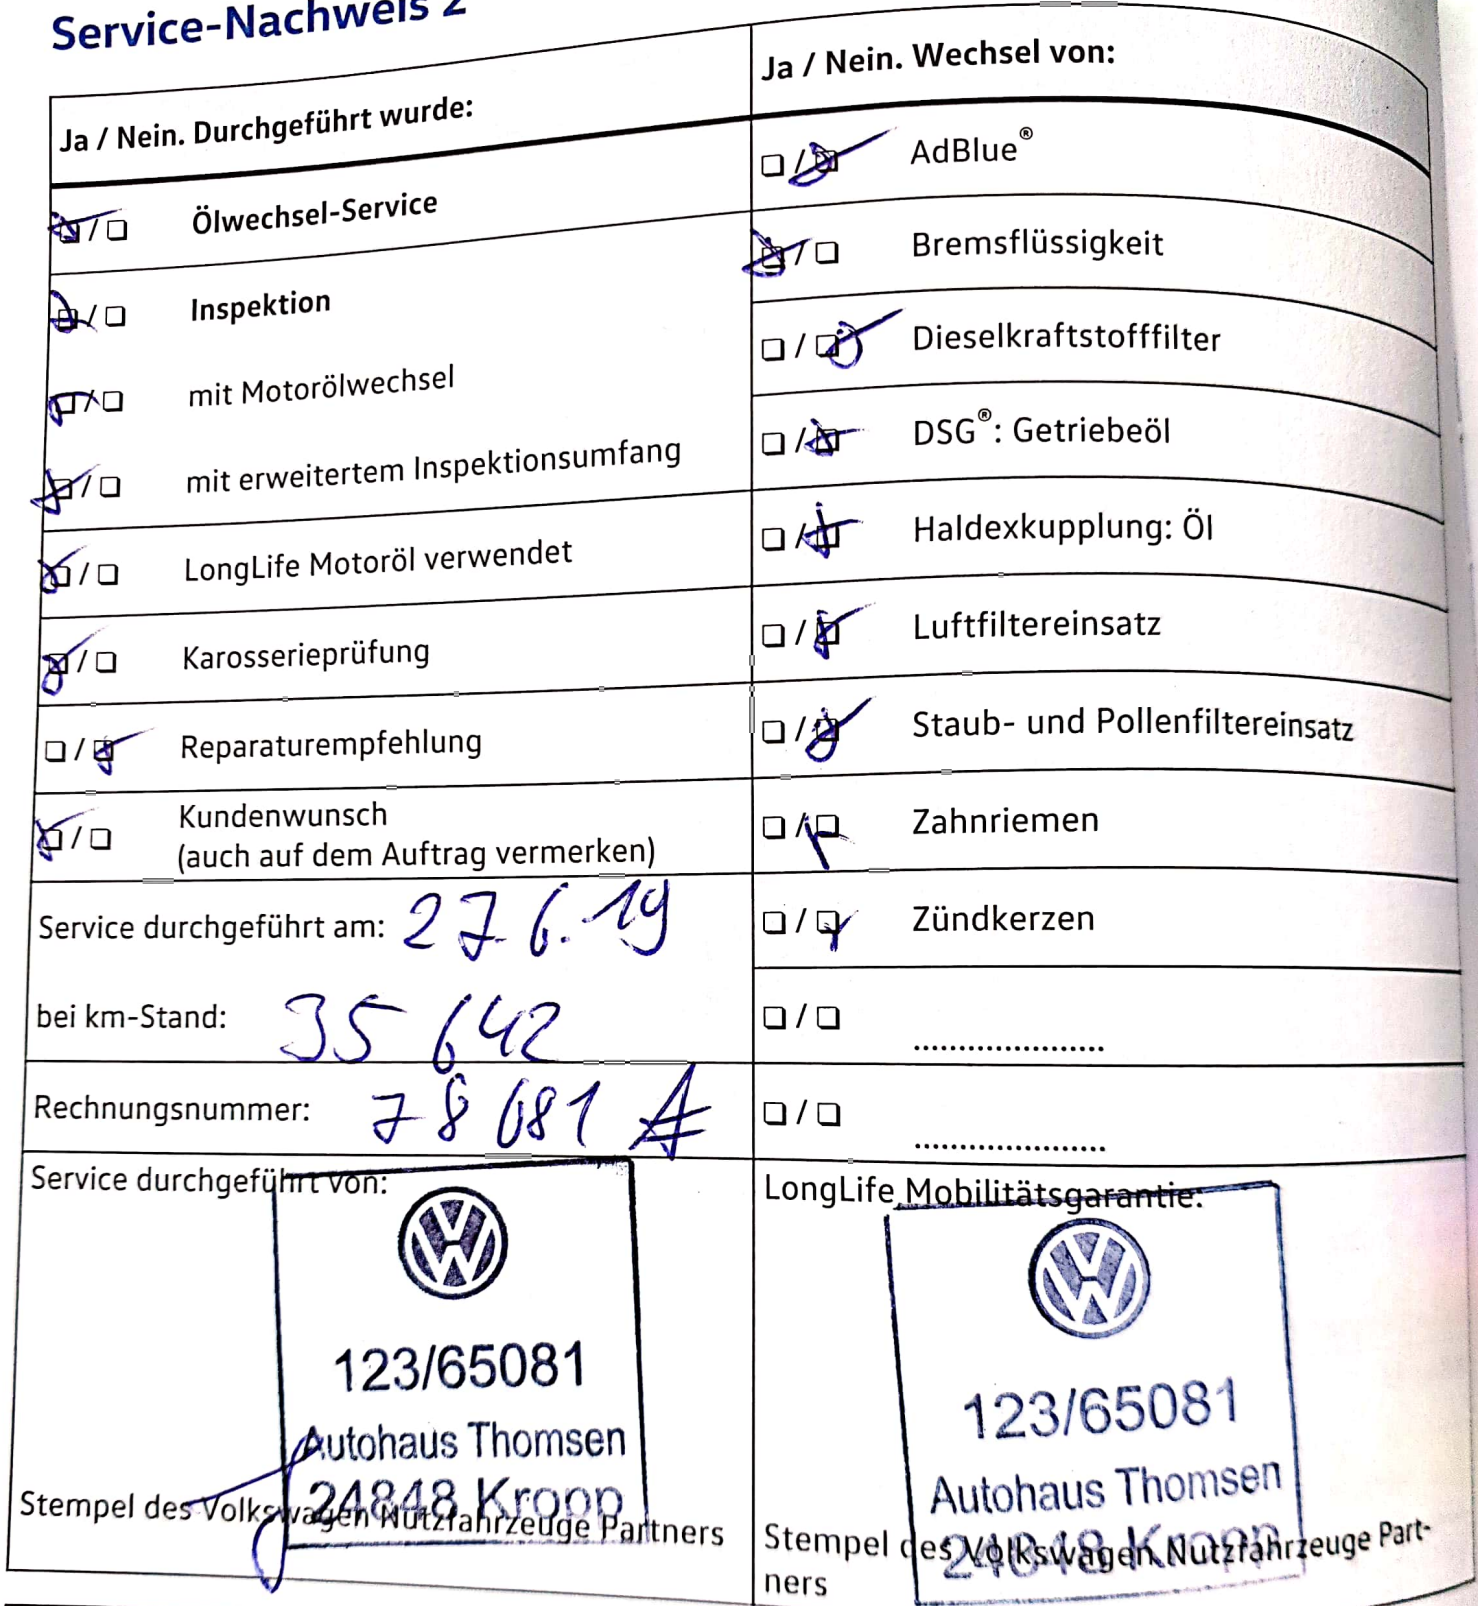 Service-Nachweis 2
Ja / Nein. Durchgeführt wurde:
Ölwechsel-Service
Inspektion
mit Motorölwechsel
mit erweitertem Inspektionsumfang
LongLife Motoröl verwendet
Karosserieprüfung
Reparaturempfehlung
Kundenwunsch
(auch auf dem Auftrag vermerken)
Service durchgeführt am: 27.6.19
bei km-Stand: 35 642
Rechnungsnummer: 78 681 A
Service durchgeführt von:
123/65081
Autohaus Thomsen
24848 Kropp
Stempel des Volkswagen Nutzfahrzeuge Partners
Ja / Nein. Wechsel von:
AdBlue®
Bremsflüssigkeit
Dieselkraftstofffilter
DSG®: Getriebeöl
Haldexkupplung: Öl
Luftfiltereinsatz
Staub- und Pollenfiltereinsatz
Zahnriemen
Zündkerzen
....................
....................
LongLife Mobilitätsgarantie:
123/65081
Autohaus Thomsen
24848 Kropp
Stempel des Volkswagen Nutzfahrzeuge Part-
ners